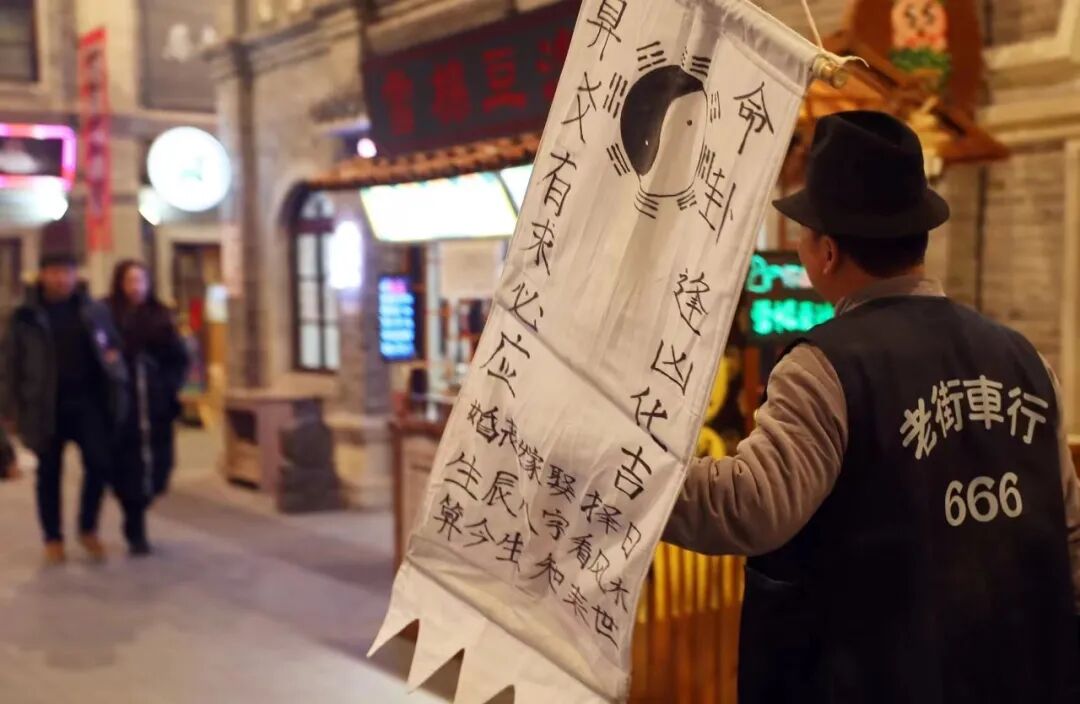 命卦 逢凶化吉
算爻有求必应
婚丧嫁娶择日
生辰八字看风水
算今生知来世
老街車行
666